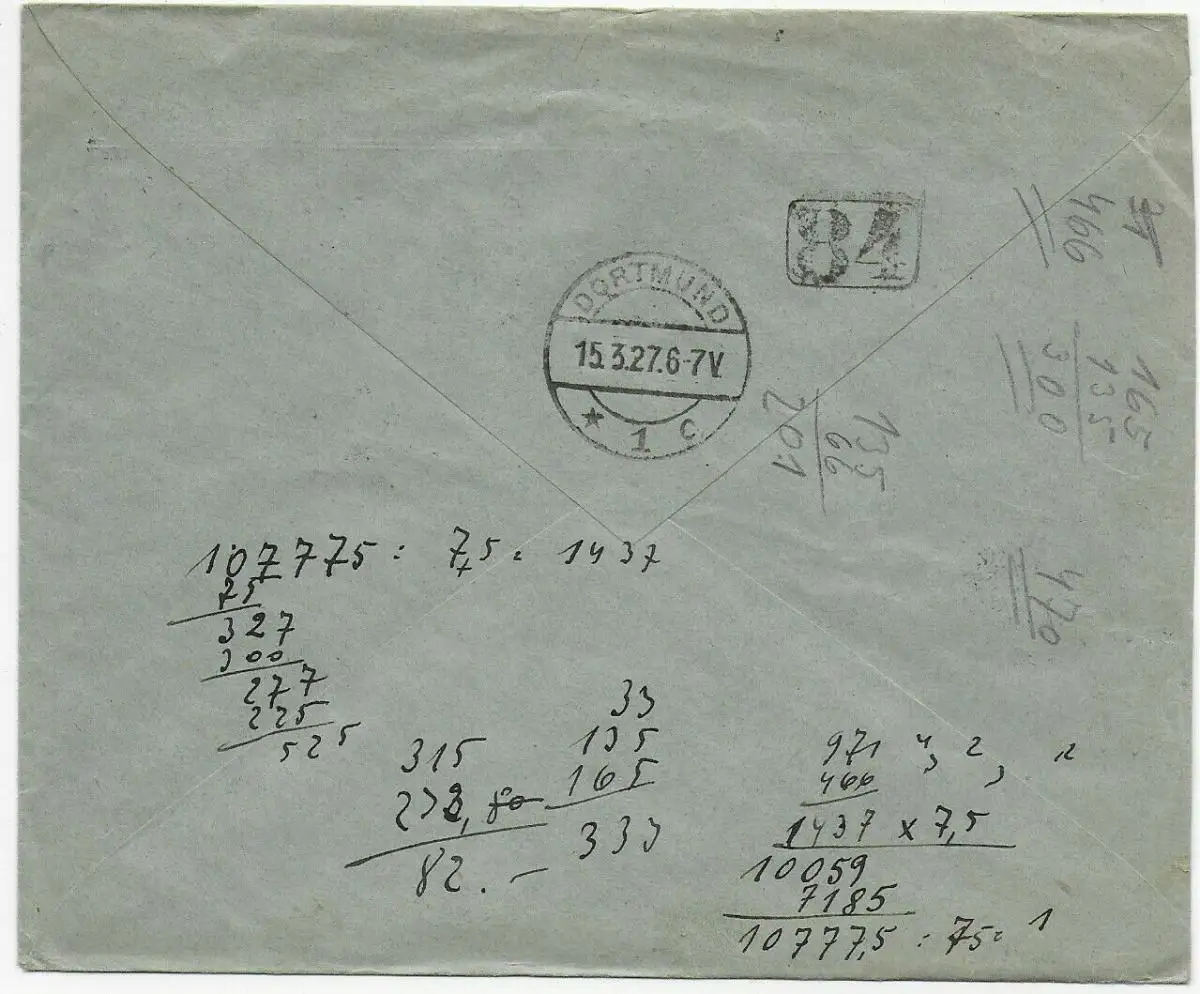 84
DORTMUND
15.3.27.6-7V.
* 1 c
31
466
165
135
300
135
66
201
470
107775 : 7,5 = 1437
75
327
300
277
225
525
315
233, 80
82. –
33
135
165
333
971 4, 2, 2
466
1437 x 7,5
10059
7185
10777,5 : 75 = 1